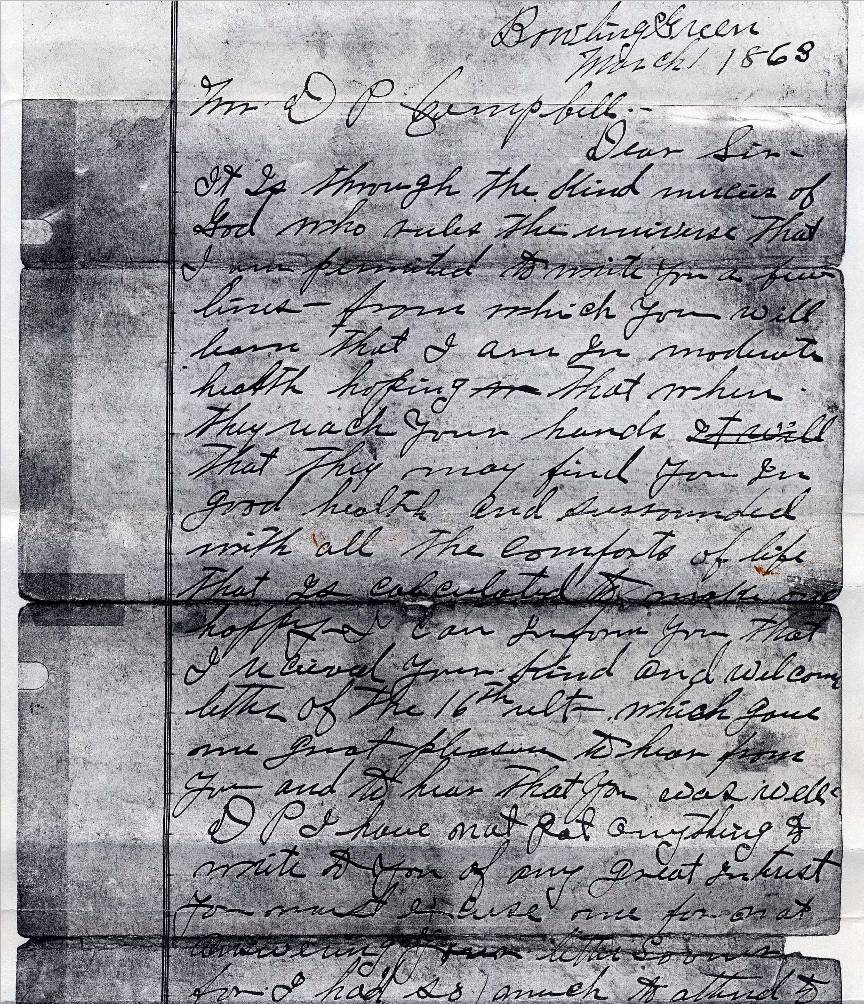 Bowling Green
March 1 1863
Mr D P Campbell.-
Dear Sir-
It Is through the Kind mercies of
God who rules the universe That
I am permitted to write you a few
lines - from which you will
learn that I am In moderate
health hoping or that when
they reach your hands it will
That they may find you In
good health and surrounded
with all the comforts of life
That Is calculated to make
happy - I can Inform you that
I recieved your kind and welcom
letter of the 16th ult - which gave
me great pleasure to hear from
you and to hear That you was well-
D P I have not got anything to
write to you of any great Intrust
you must excuse me for not
answering your letter sooner
for I had so much to attend to